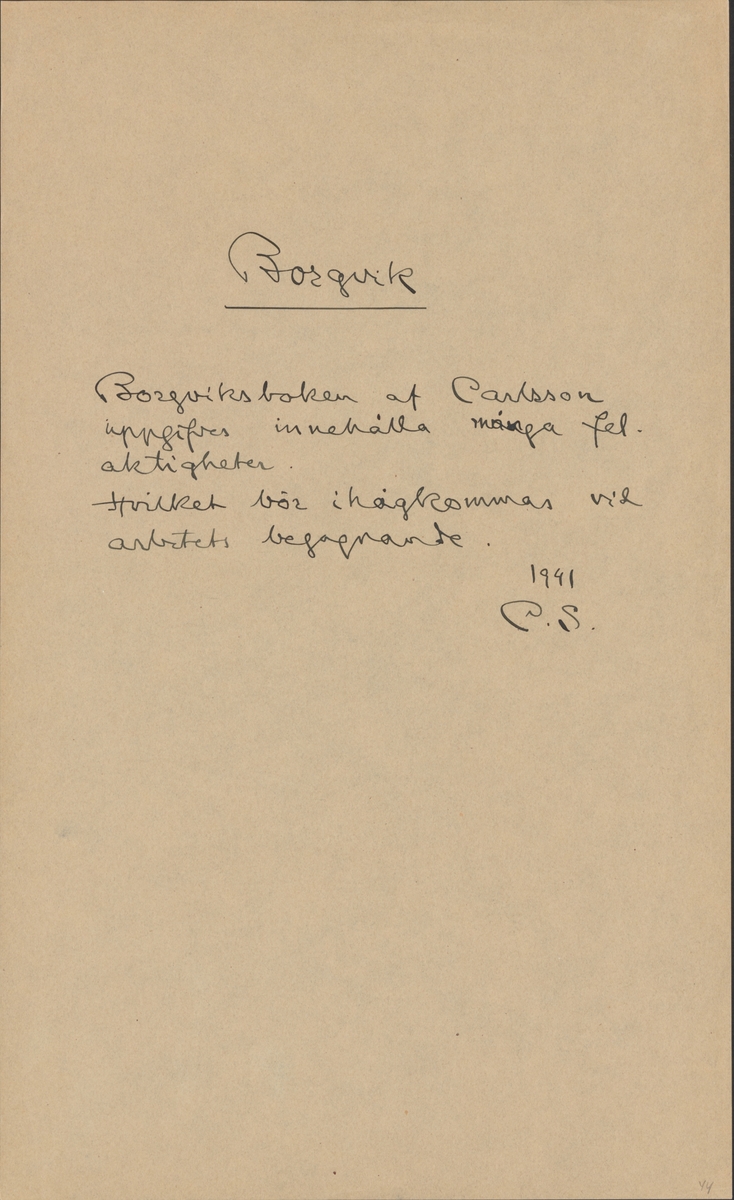 Borgvik
Borgviksboken af Carlsson
uppgifves innehålla många fel-
aktigheter.
Hvilket bör ihågkommas vid
arbetets begagnande.
1941
C.S.
44